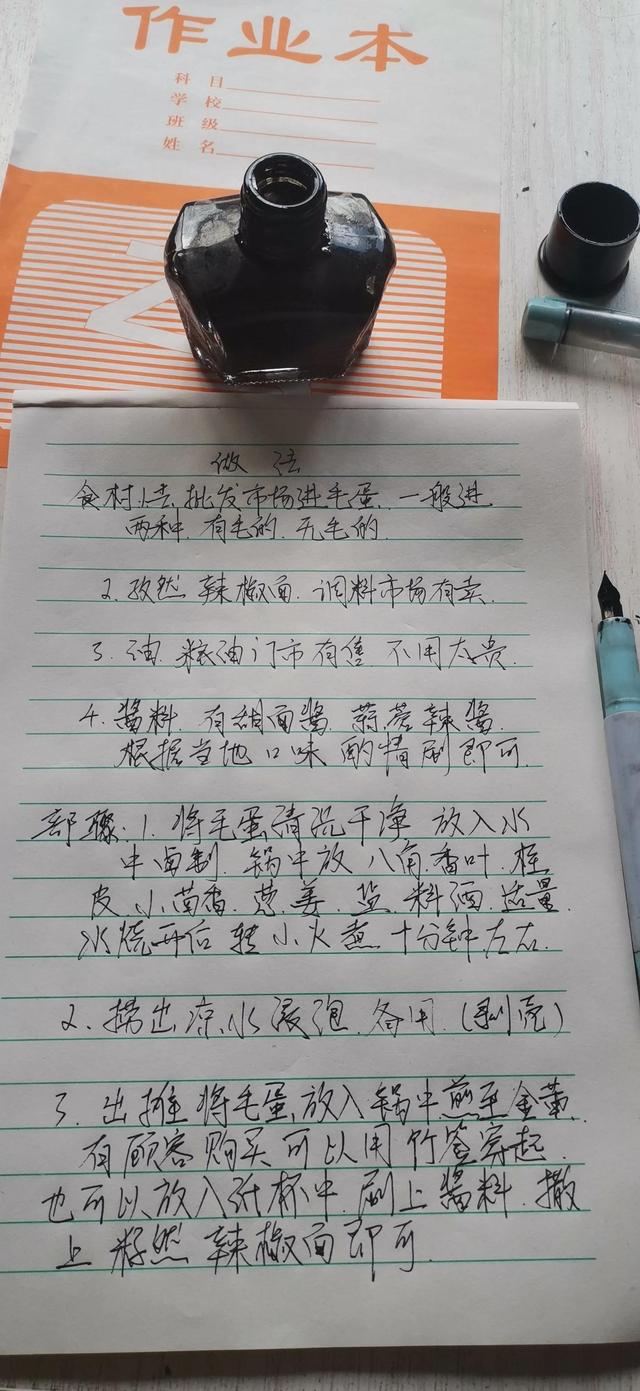 作业本
科目
学校
班级
姓名
做法
食材1去批发市场进毛蛋.一般进
两种.有毛的.无毛的.
2.孜然 辣椒面.调料市场有卖.
3.油.粮油门市有售.不用太贵.
4.酱料.有甜面酱.蒜蓉辣酱.
根据当地口味 酌情刷即可.
部骤:1.将毛蛋清洗干净 放入水
中卤制.锅中放八角.香叶.桂
皮.小茴香.葱.姜.盐.料酒.适量.
水烧开后转小火煮十分钟左右.
2.捞出凉水浸泡.备用.(剥壳)
3.出摊将毛蛋放入锅中煎至金黄.
有顾客购买可以用竹签穿起.
也可以放入纸杯中.刷上酱料.撒
上孜然 辣椒面即可.